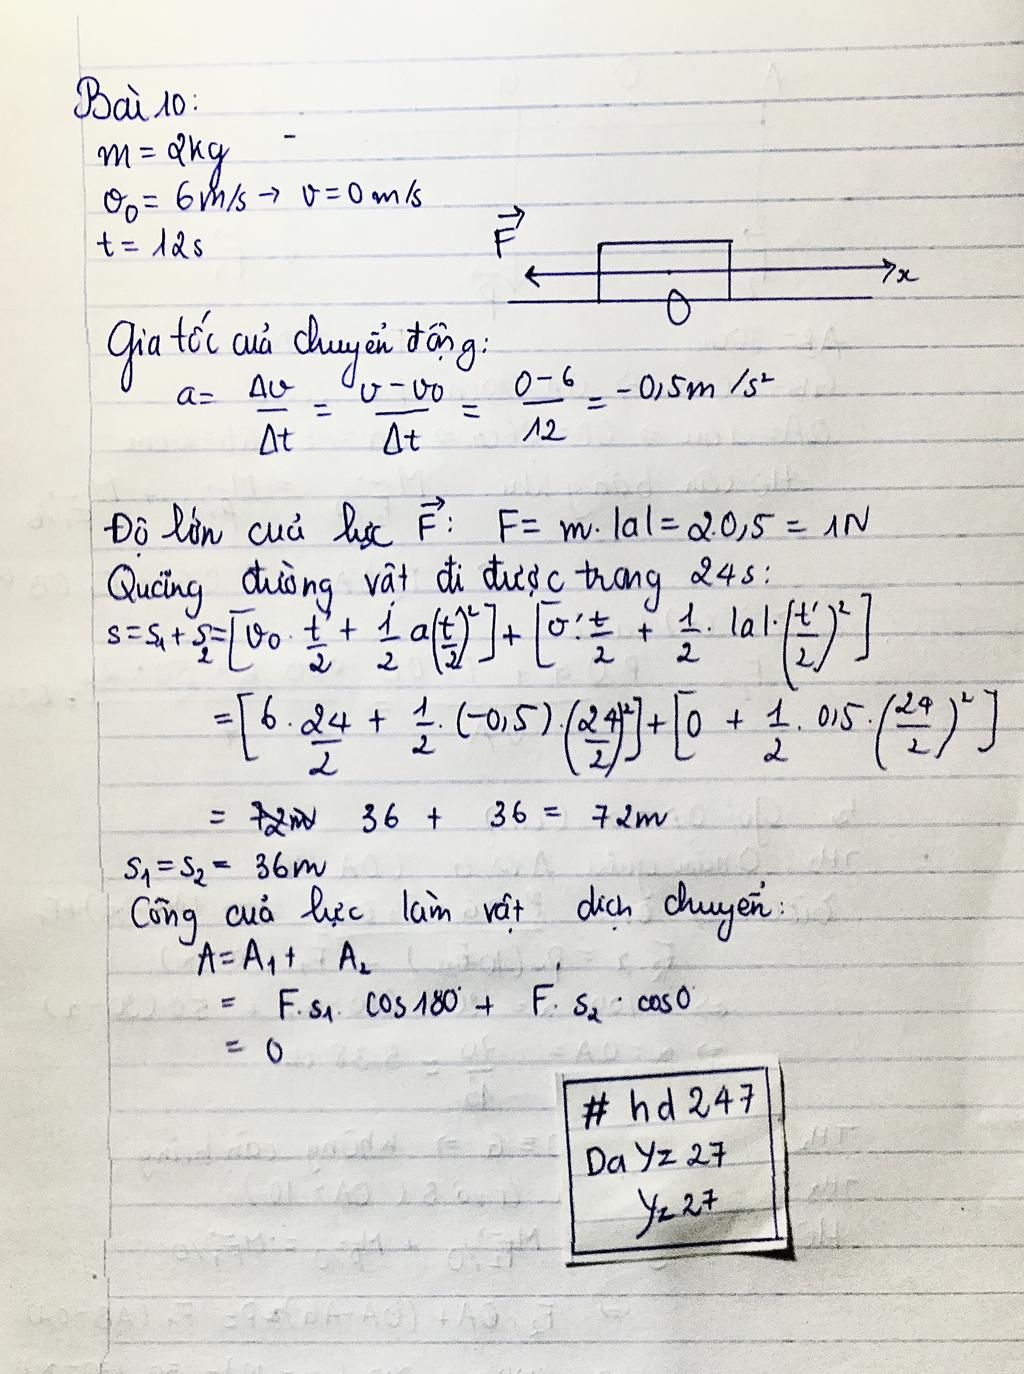 Bài 10:
m = 2kg
v₀ = 6m/s → v = 0 m/s
t = 12s
F⃗
x
O
Gia tốc của chuyển động:
a = Δv/Δt = (v - v₀)/Δt = (0 - 6)/12 = -0,5m/s²
Độ lớn của lực F⃗: F = m.|a| = 2.0,5 = 1N
Quãng đường vật đi được trong 24s:
s = s₁ + s₂ = [v₀ . t'/2 + 1/2 a(t'/2)²] + [v . t'/2 + 1/2 . |a| . (t'/2)²]
= [6 . 24/2 + 1/2 . (-0,5) . (24/2)²] + [0 + 1/2 . 0,5 . (24/2)²]
= 72m 36 + 36 = 72m
s₁ = s₂ = 36m
Công của lực làm vật dịch chuyển:
A = A₁ + A₂
= F.s₁. cos180° + F. s₂ . cos0°
= 0
# hd 247
Da Yz 27
Yz 27